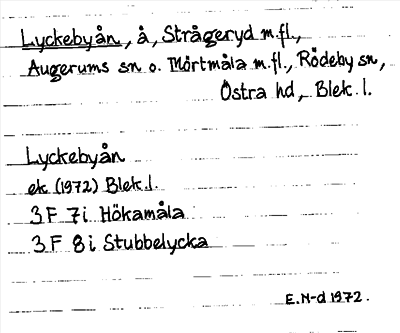 Lyckebyån, å, Strågeryd m.fl.,
Augerums sn o. Mörtmåla m.fl., Rödeby sn,
Östra hd, Blek. l.
Lyckebyån
ek (1972) Blek. l.
3 F 7 i Hökamåla
3 F 8 i Stubbelycka
E.N-d 1972.